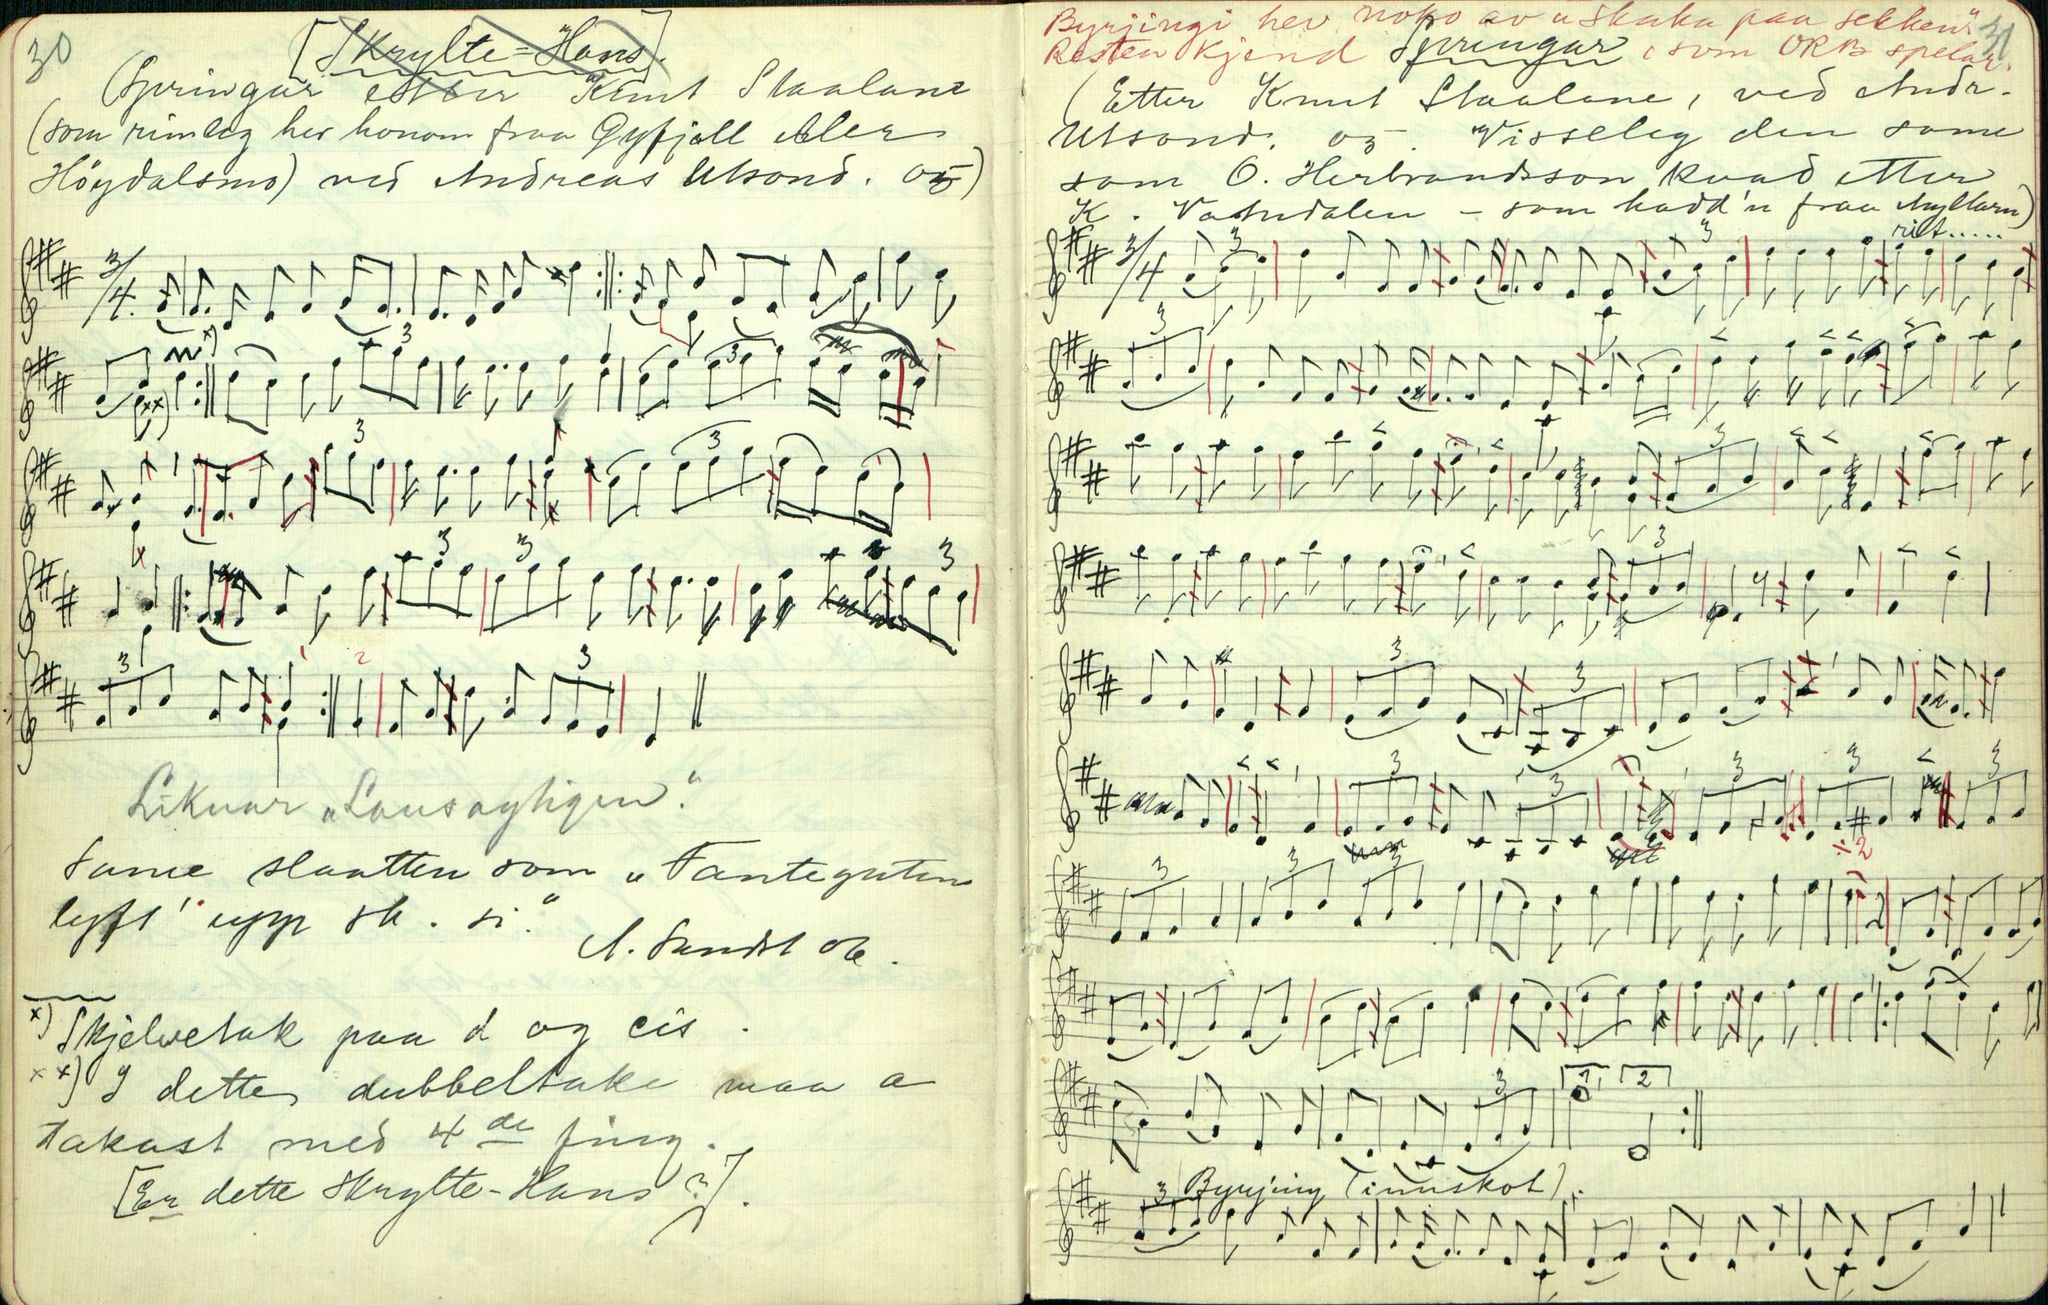 30
[Skrylte=Hans].
(Springar etter Knut Staalane
(som rimleg hev honom fraa Gyfjell eller
Höydalsmo) ved Andreas Utsond. o5)
3/4.
3
x)
xx)
3
3
3
3
3
3
3
1
2
3
Liknar „Lausagligen".
Same slaatten som „Fanteguten
lyft' upp sk. si."
A. Sundst 06.
x) Skjelvetak paa d og cis.
xx) I dette dubbeltake maa a
takast med 4de fing.
[Er dette Skrylte-Hans?].
31
Byrjingi hev noko av „Skaka paa sekken"
Resten kjend Springar, som ORB spelar.
(Etter Knut Staalane, ved Andr.
Utsond. o5. Visseleg den same
som O. Herbrandsson kvad etter
K. Vatndalen – som hadd'n fraa Myllarn)
rit.....
3/4
3
3
3
3
3
3
3
3
3
3
3
÷2
3
3
3
3
1
2
Byrjing (innskot).
3